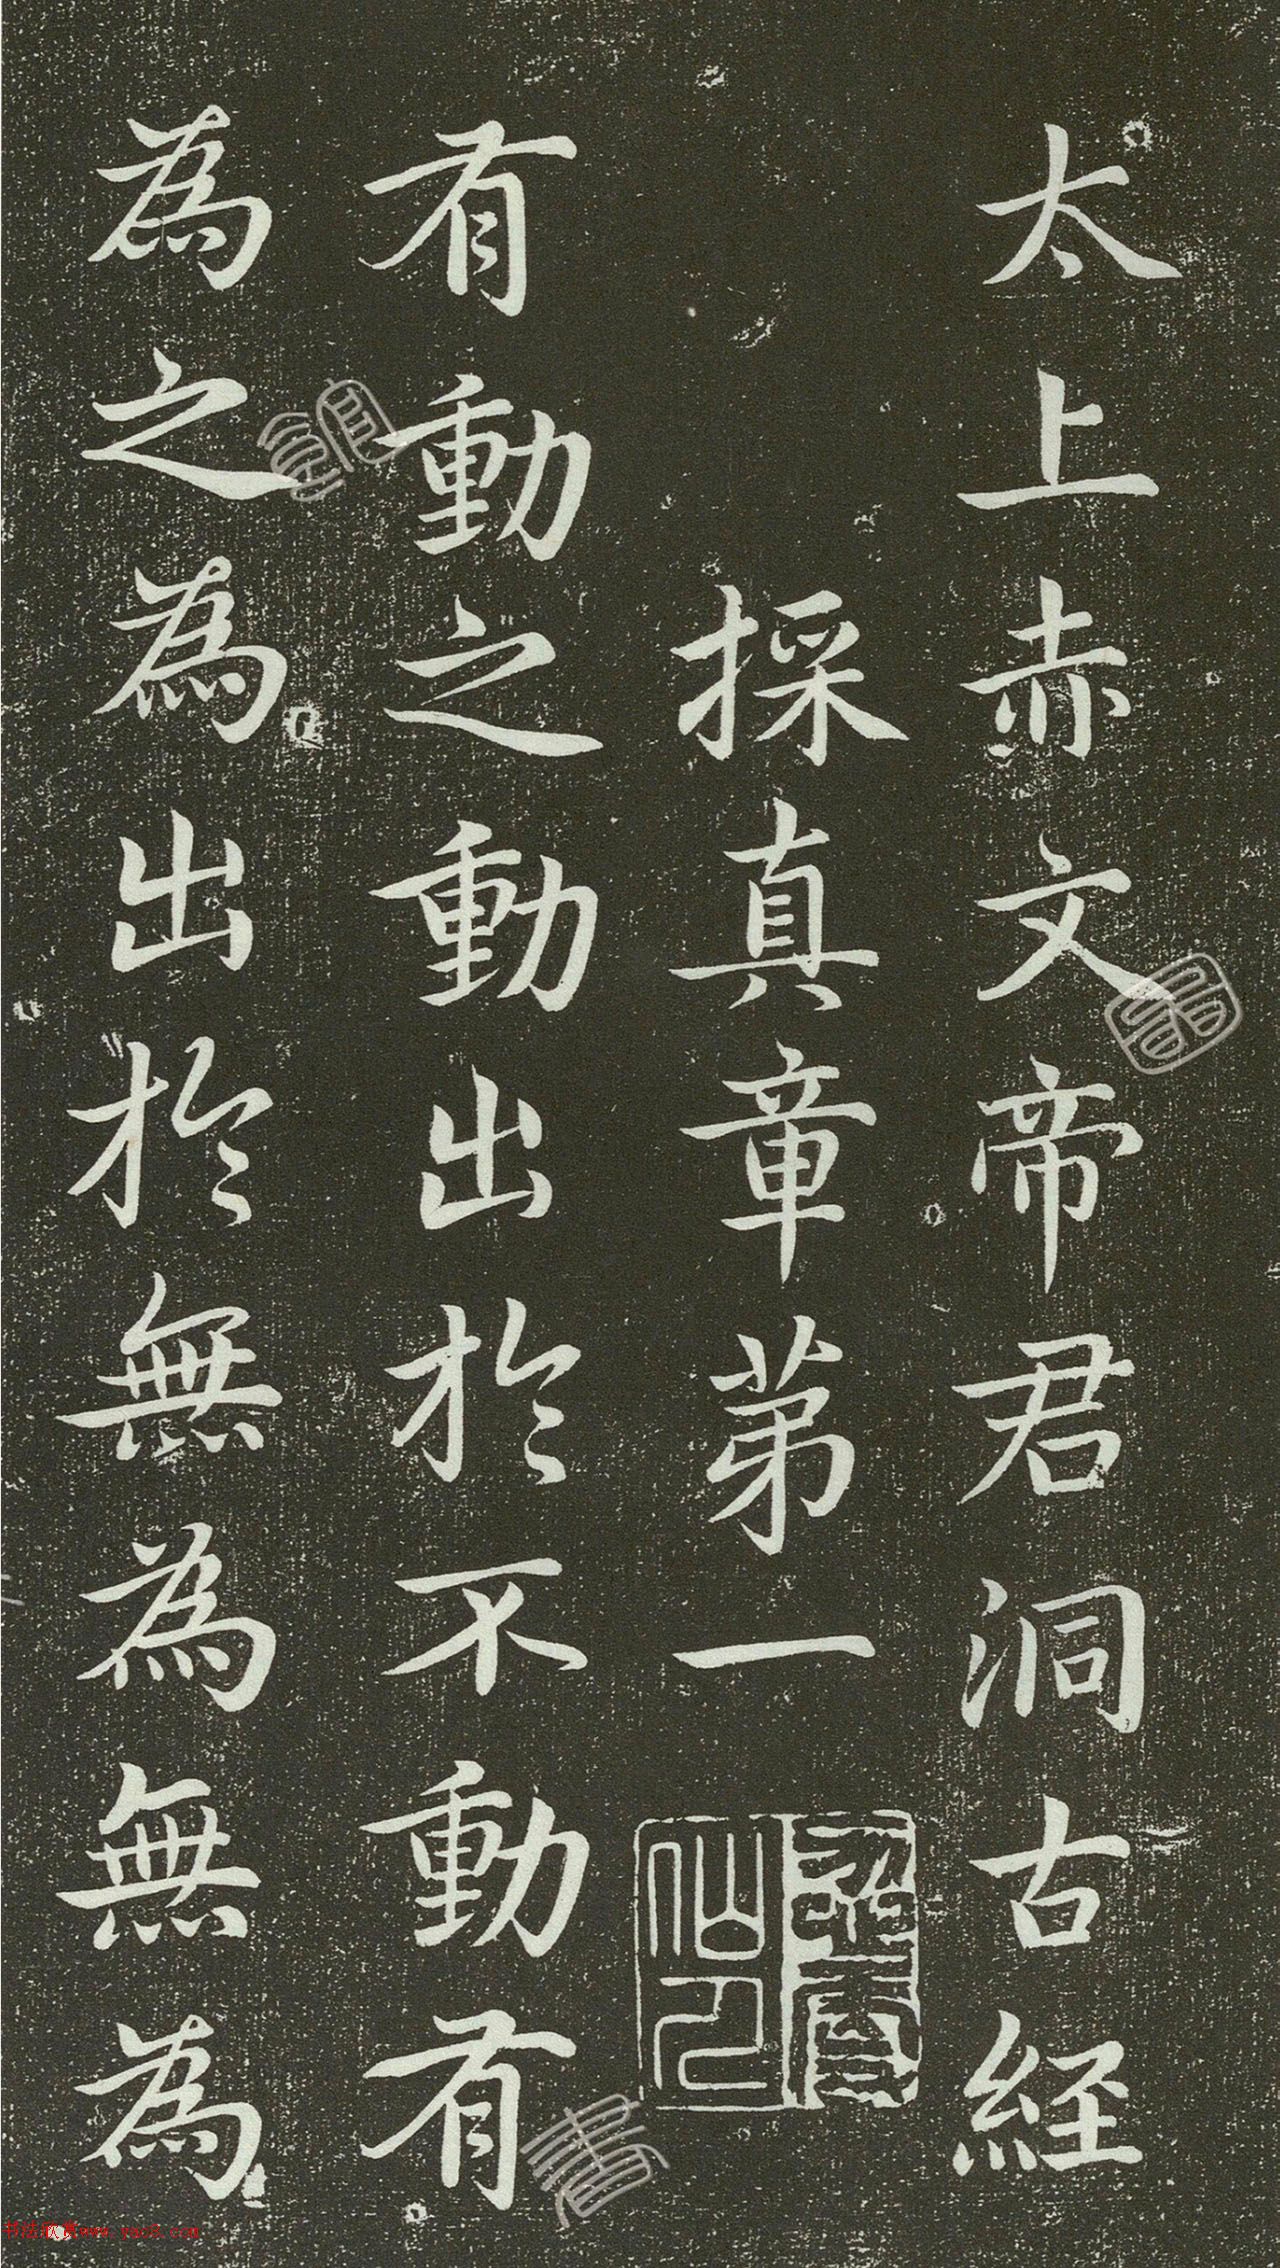 太上赤文帝君洞古経
採真章苐一
有動之動出於不動有
為之為出於無為無為
www.yac8.com